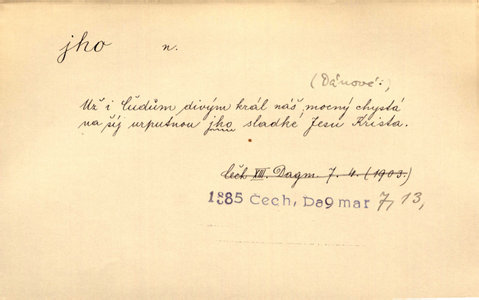 jho n.
(Dánové:)
Už i lidům divým král náš mocný chystá
na šíj urputnou jho sladké Jesu Krista.
Čech XIII. Dagm. 7. 4. (1903.)
1885 Čech, Dagmar 7, 13,